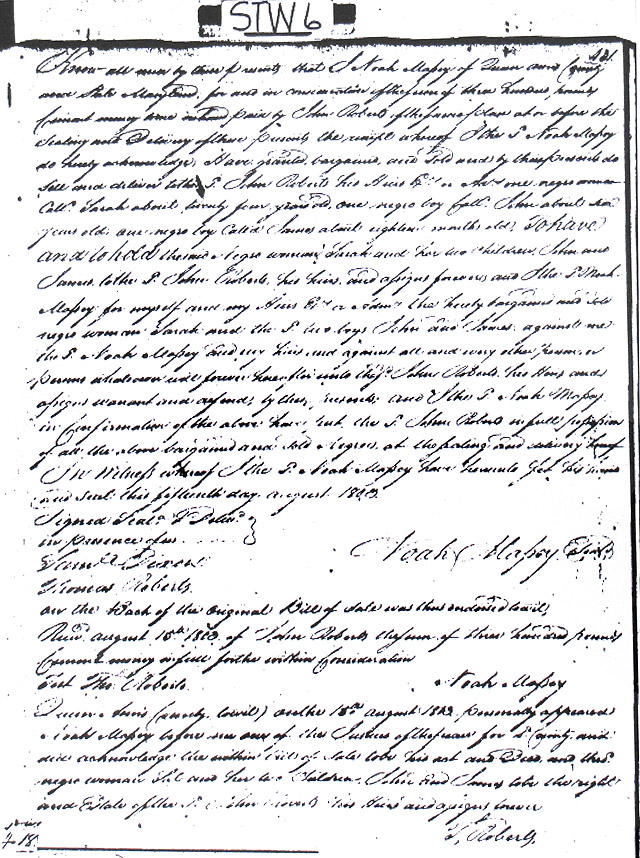 STW 6
131
Know all men by these presents that I Noah Massey of Queen anns County
and State Maryland, for and in consideration of the sum of three hundred pounds
Current money to me in hand paid by John Roberts of the same place at or before the
Sealing and Delivery of these Presents the receipt whereof I the S. Noah Massey
do hereby acknowledge, Have granted, bargained, and Sold and by these presents do
Sell and deliver to the S. John Roberts his Heirs Exrs or Admrs one negro woman
Calld Sarah about twenty four years old, one negro boy Calld John about
years old, one negro boy Called James about eighteen months old, To have
and to hold the said Negro woman Sarah and her two Children John and
James to the S. John Roberts, his heirs, and assigns forever, and I the S. Noah
Massey for myself and my Heirs Exrs or Admrs the hereby bargained and sold
negro woman Sarah and the S. two boys John and James, against me
the S. Noah Massey and my heirs and against all and every other person or
persons whatsoever will forever unto the S. John Roberts, his Heirs and
assigns warrant and defend, by these presents, and I the S. Noah Massey
in Confirmation of the above have put the S. John Roberts in full possession
of all the above bargained and sold negroes, at the sealing and delivery hereof
In Witness whereof I the S. Noah Massey have hereunto Set his hand
and seal this fifteenth day august
Signed Seald & Delivd
in presence of us
Noah Massey Seal
Saml Dixon
Thomas Roberts
on the Back of the original Bill of Sale was thus endorsed towit,
Recd august 15th of John Roberts the sum of three hundred pounds
Current money in full for the within Consideration
Test Tho. Roberts
Noah Massey
Queen Anns County towit) on the 15th august personally appeared
Noah Massey before me one of the Justices of the peace for S. County and
did acknowledge the within bill of Sale to be his act and Deed, and the S.
negro woman and her two Children, John and James to be the right
and Estate of the S. John Roberts his Heirs and assigns forever
T. Roberts.